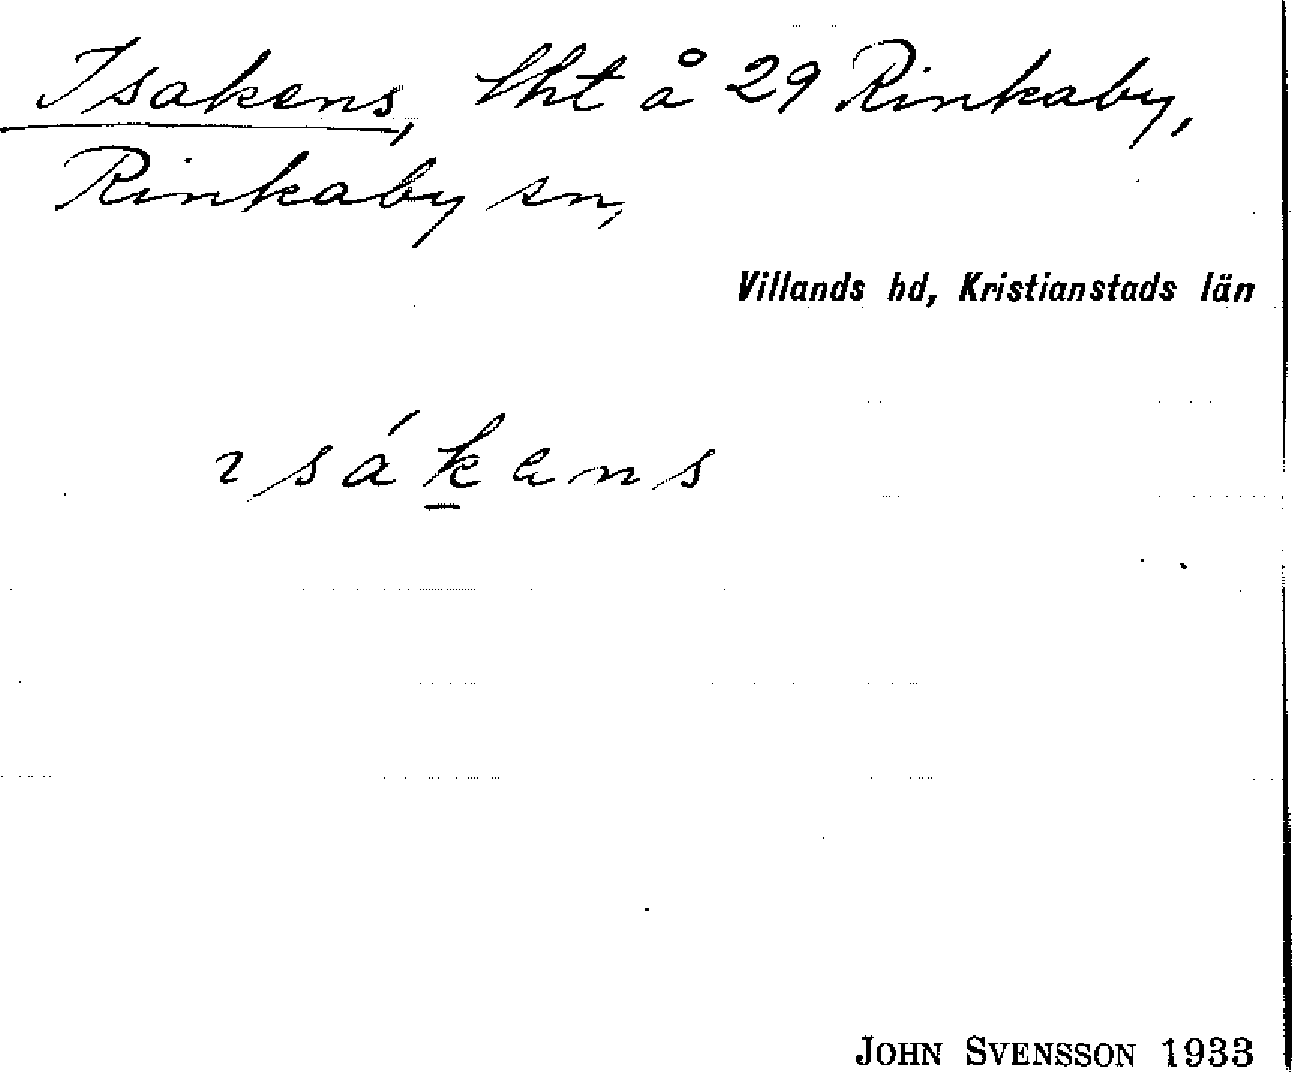 Isakens, lht å 29 Rinkaby,
Rinkaby sn,
Villands hd, Kristianstads län
ısákens
JOHN SVENSSON 1933